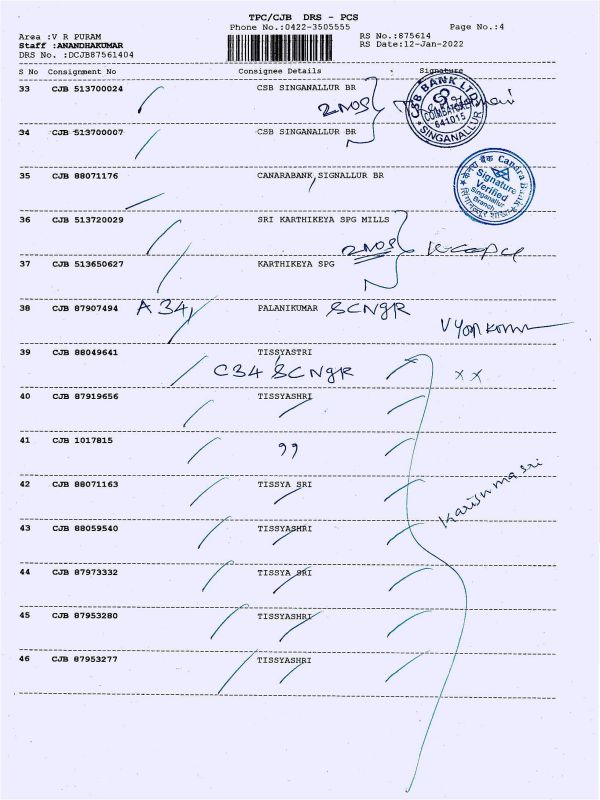 TPC/CJB DRS - PCS
Phone No.:0422-3505555
Page No.:4
Area :V R PURAM
RS No.:875614
Staff :ANANDHAKUMAR
RS Date:12-Jan-2022
DRS No. :DCJB87561404
S No Consignment No Consignee Details Signature
33 CJB 513700024 CSB SINGANALLUR BR
2NOS
CSB BANK LTD
COIMBATORE
641015
SINGANALLUR
34 CJB 513700007 CSB SINGANALLUR BR
35 CJB 88071176 CANARABANK SIGNALLUR BR
केनरा बैंक Canara Bank
Signature
Verified
Singanallur
Branch
36 CJB 513720029 SRI KARTHIKEYA SPG MILLS
2NOS
37 CJB 513650627 KARTHIKEYA SPG
38 CJB 87907494 A 34, PALANIKUMAR SCNgR
39 CJB 88049641 TISSYASTRI
C34 SCNgR
x x
40 CJB 87919656 TISSYASHRI
41 CJB 1017815 99
42 CJB 88071163 TISSYA SRI
Karishmasri
43 CJB 88059540 TISSYASHRI
44 CJB 87973332 TISSYA SRI
45 CJB 87953280 TISSYASHRI
46 CJB 87953277 TISSYASHRI